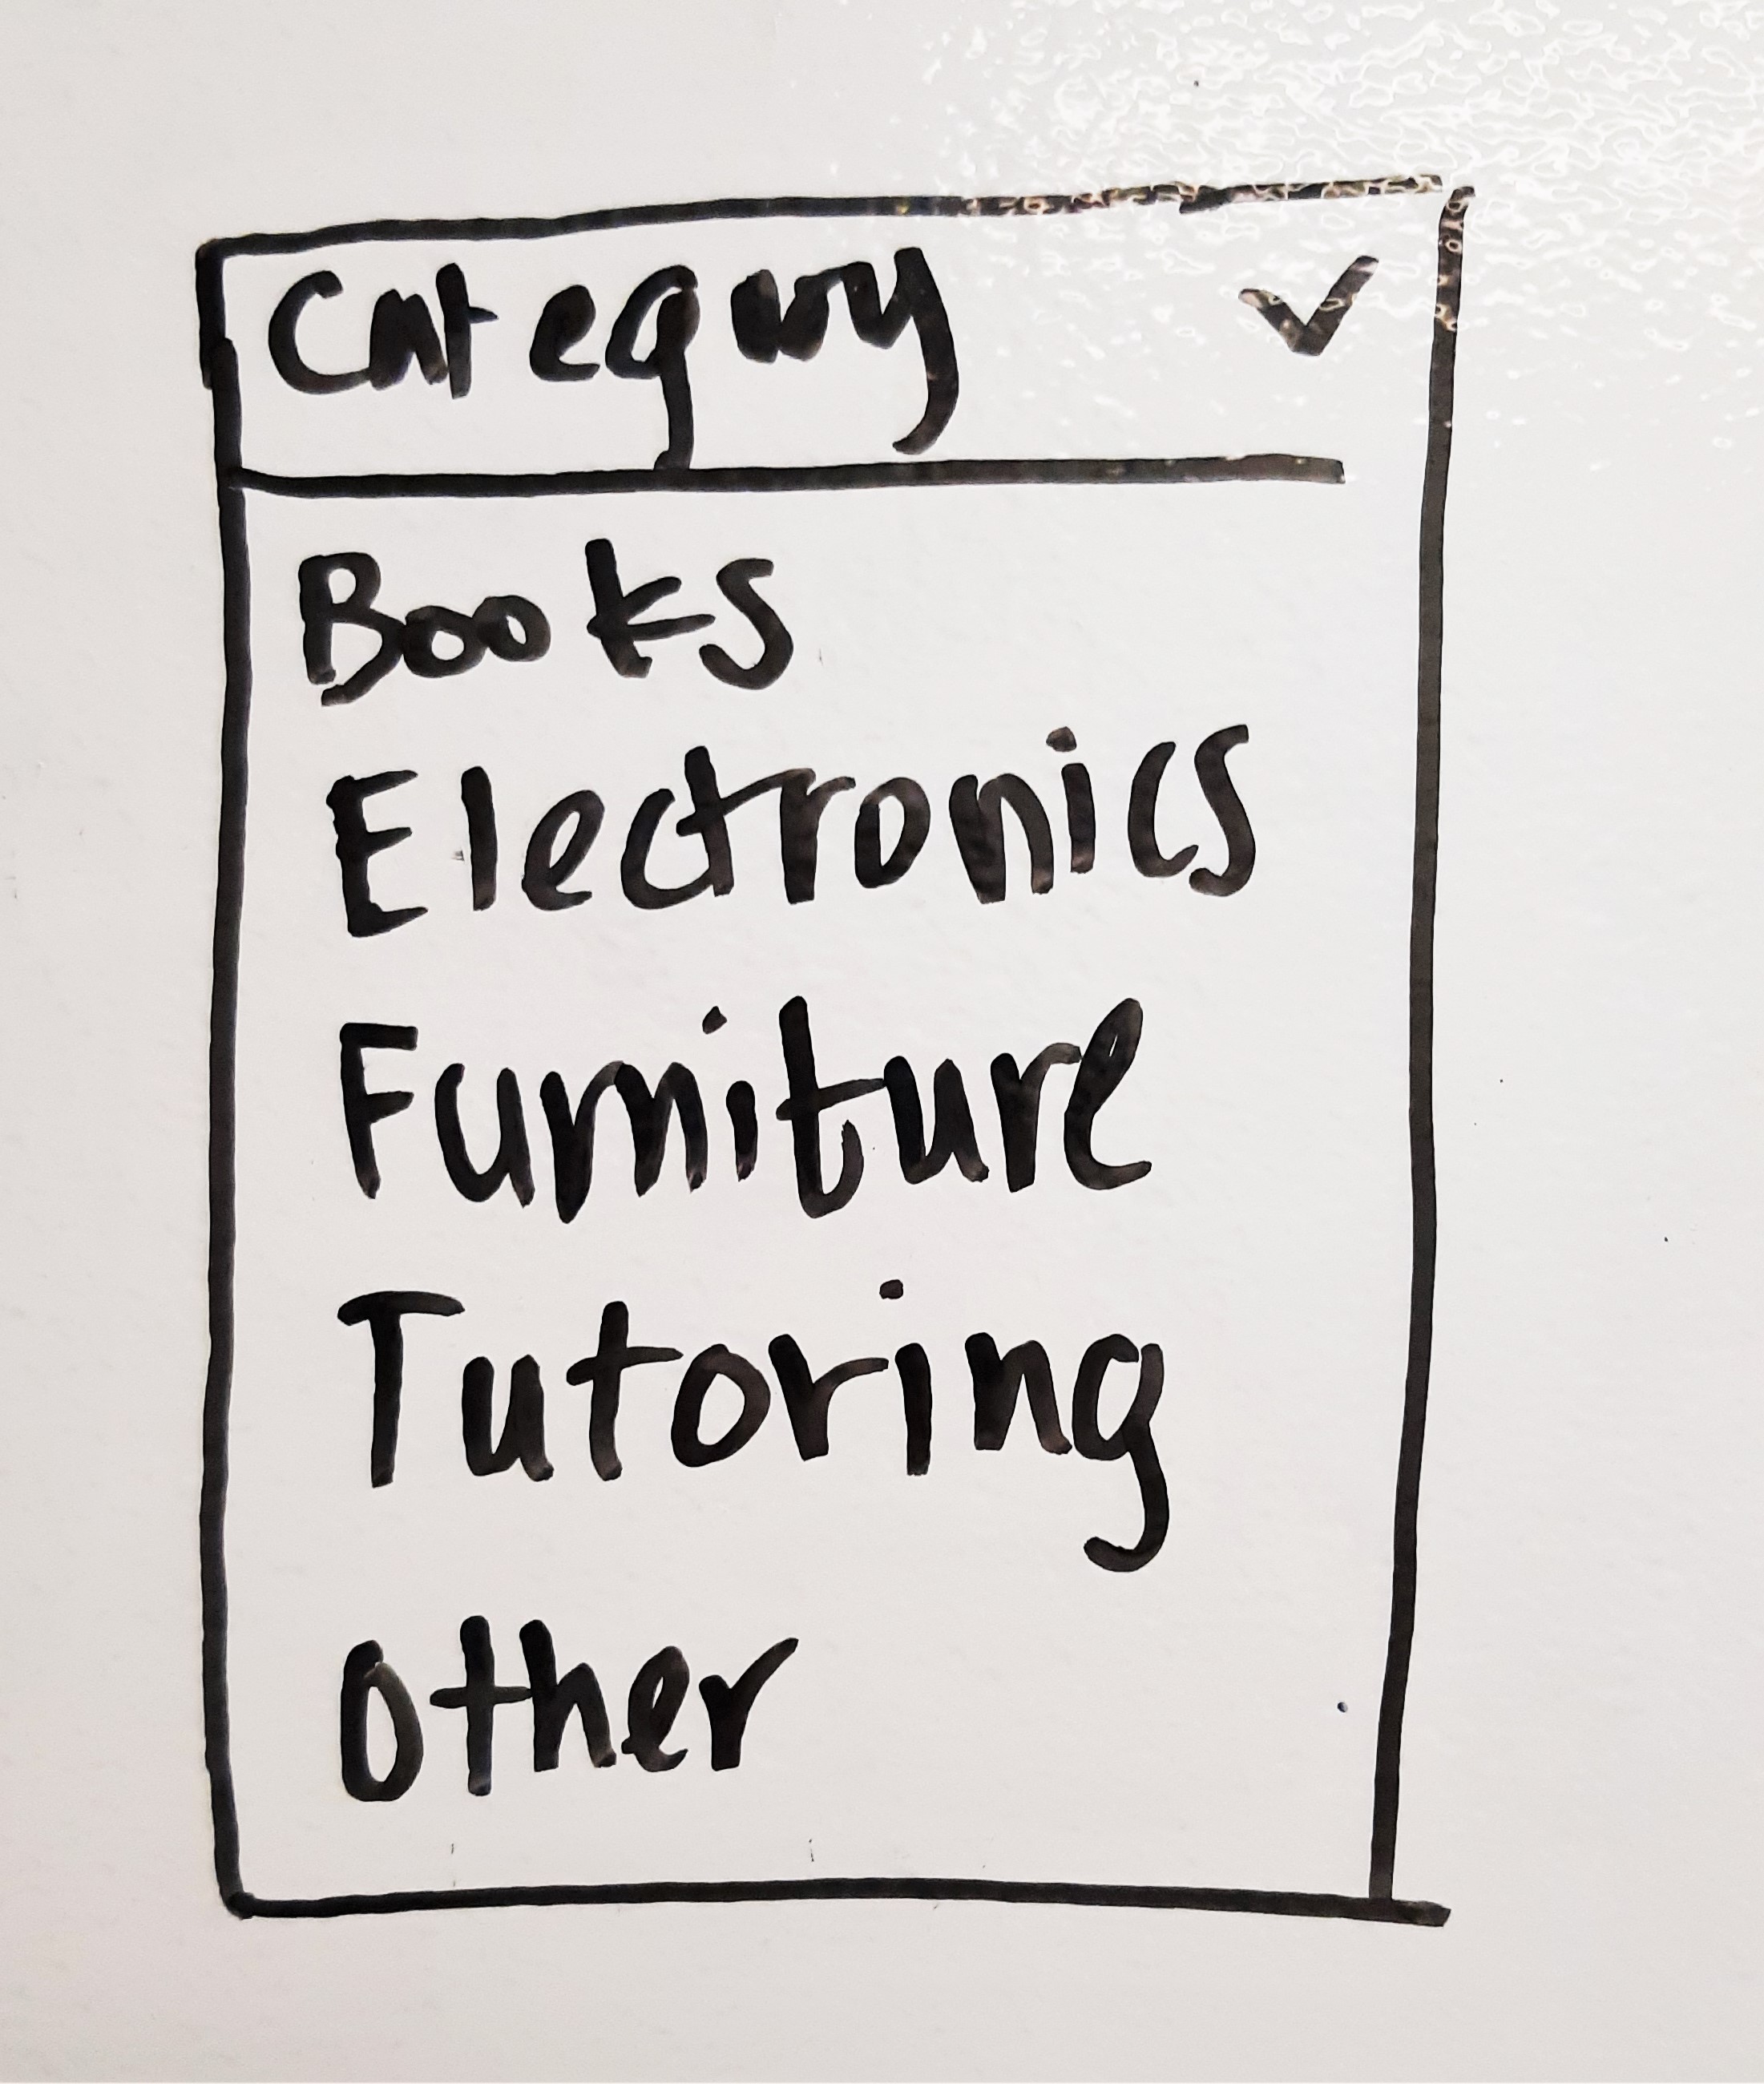 Category
Books
Electronics
Furniture
Tutoring
Other